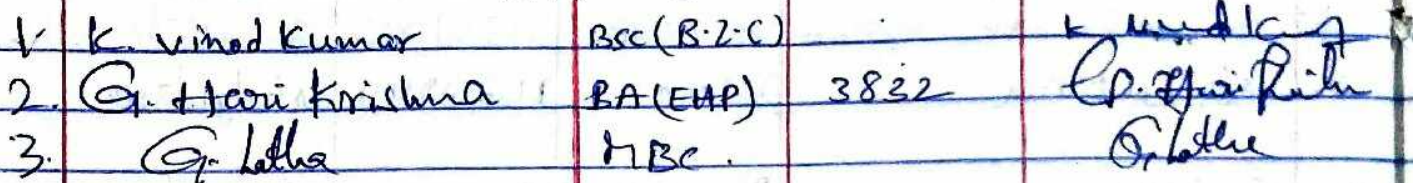 1. K. Vinod Kumar BSC (B.Z.C) K Vinod Kumar
2. G. Hari Krishna BA (EHP) 3832 G. Hari Krishna
3. G. Latha MBC. G. Latha